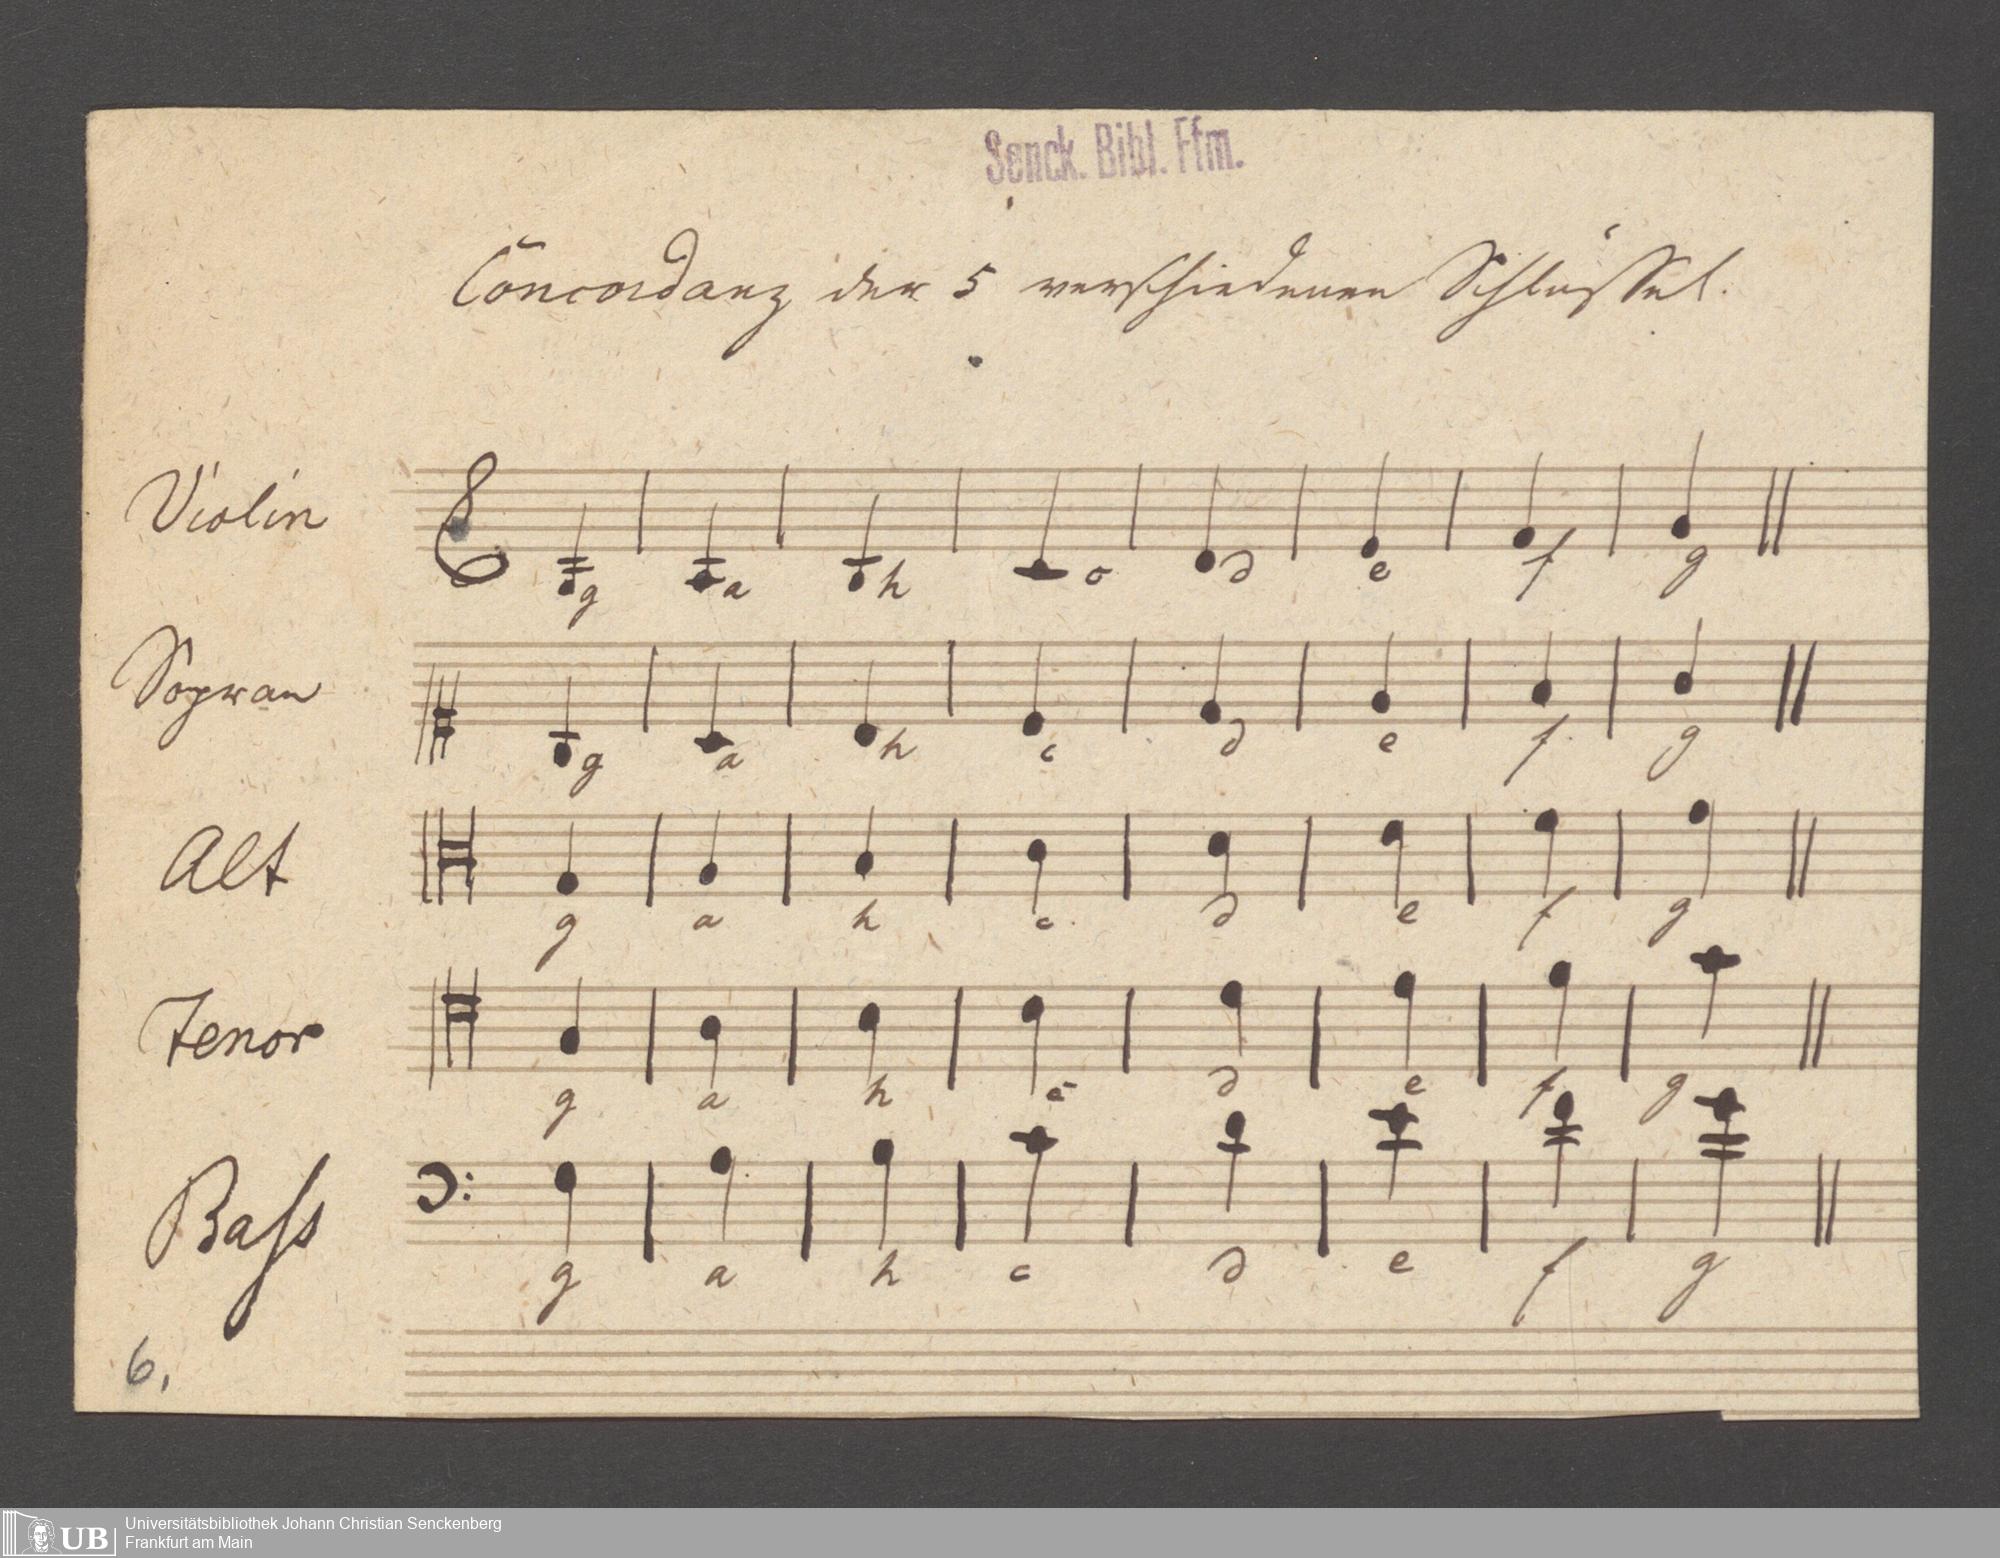 Senck. Bibl. Ffm.
Concordanz der 5 verschiedenen Schlüssel.
Violin
g a h c d e f g
Sopran
g a h c d e f g
Alt
g a h c d e f g
Tenor
g a h c d e f g
Baſs
g a h c d e f g
6,
UB
Universitätsbibliothek Johann Christian Senckenberg
Frankfurt am Main